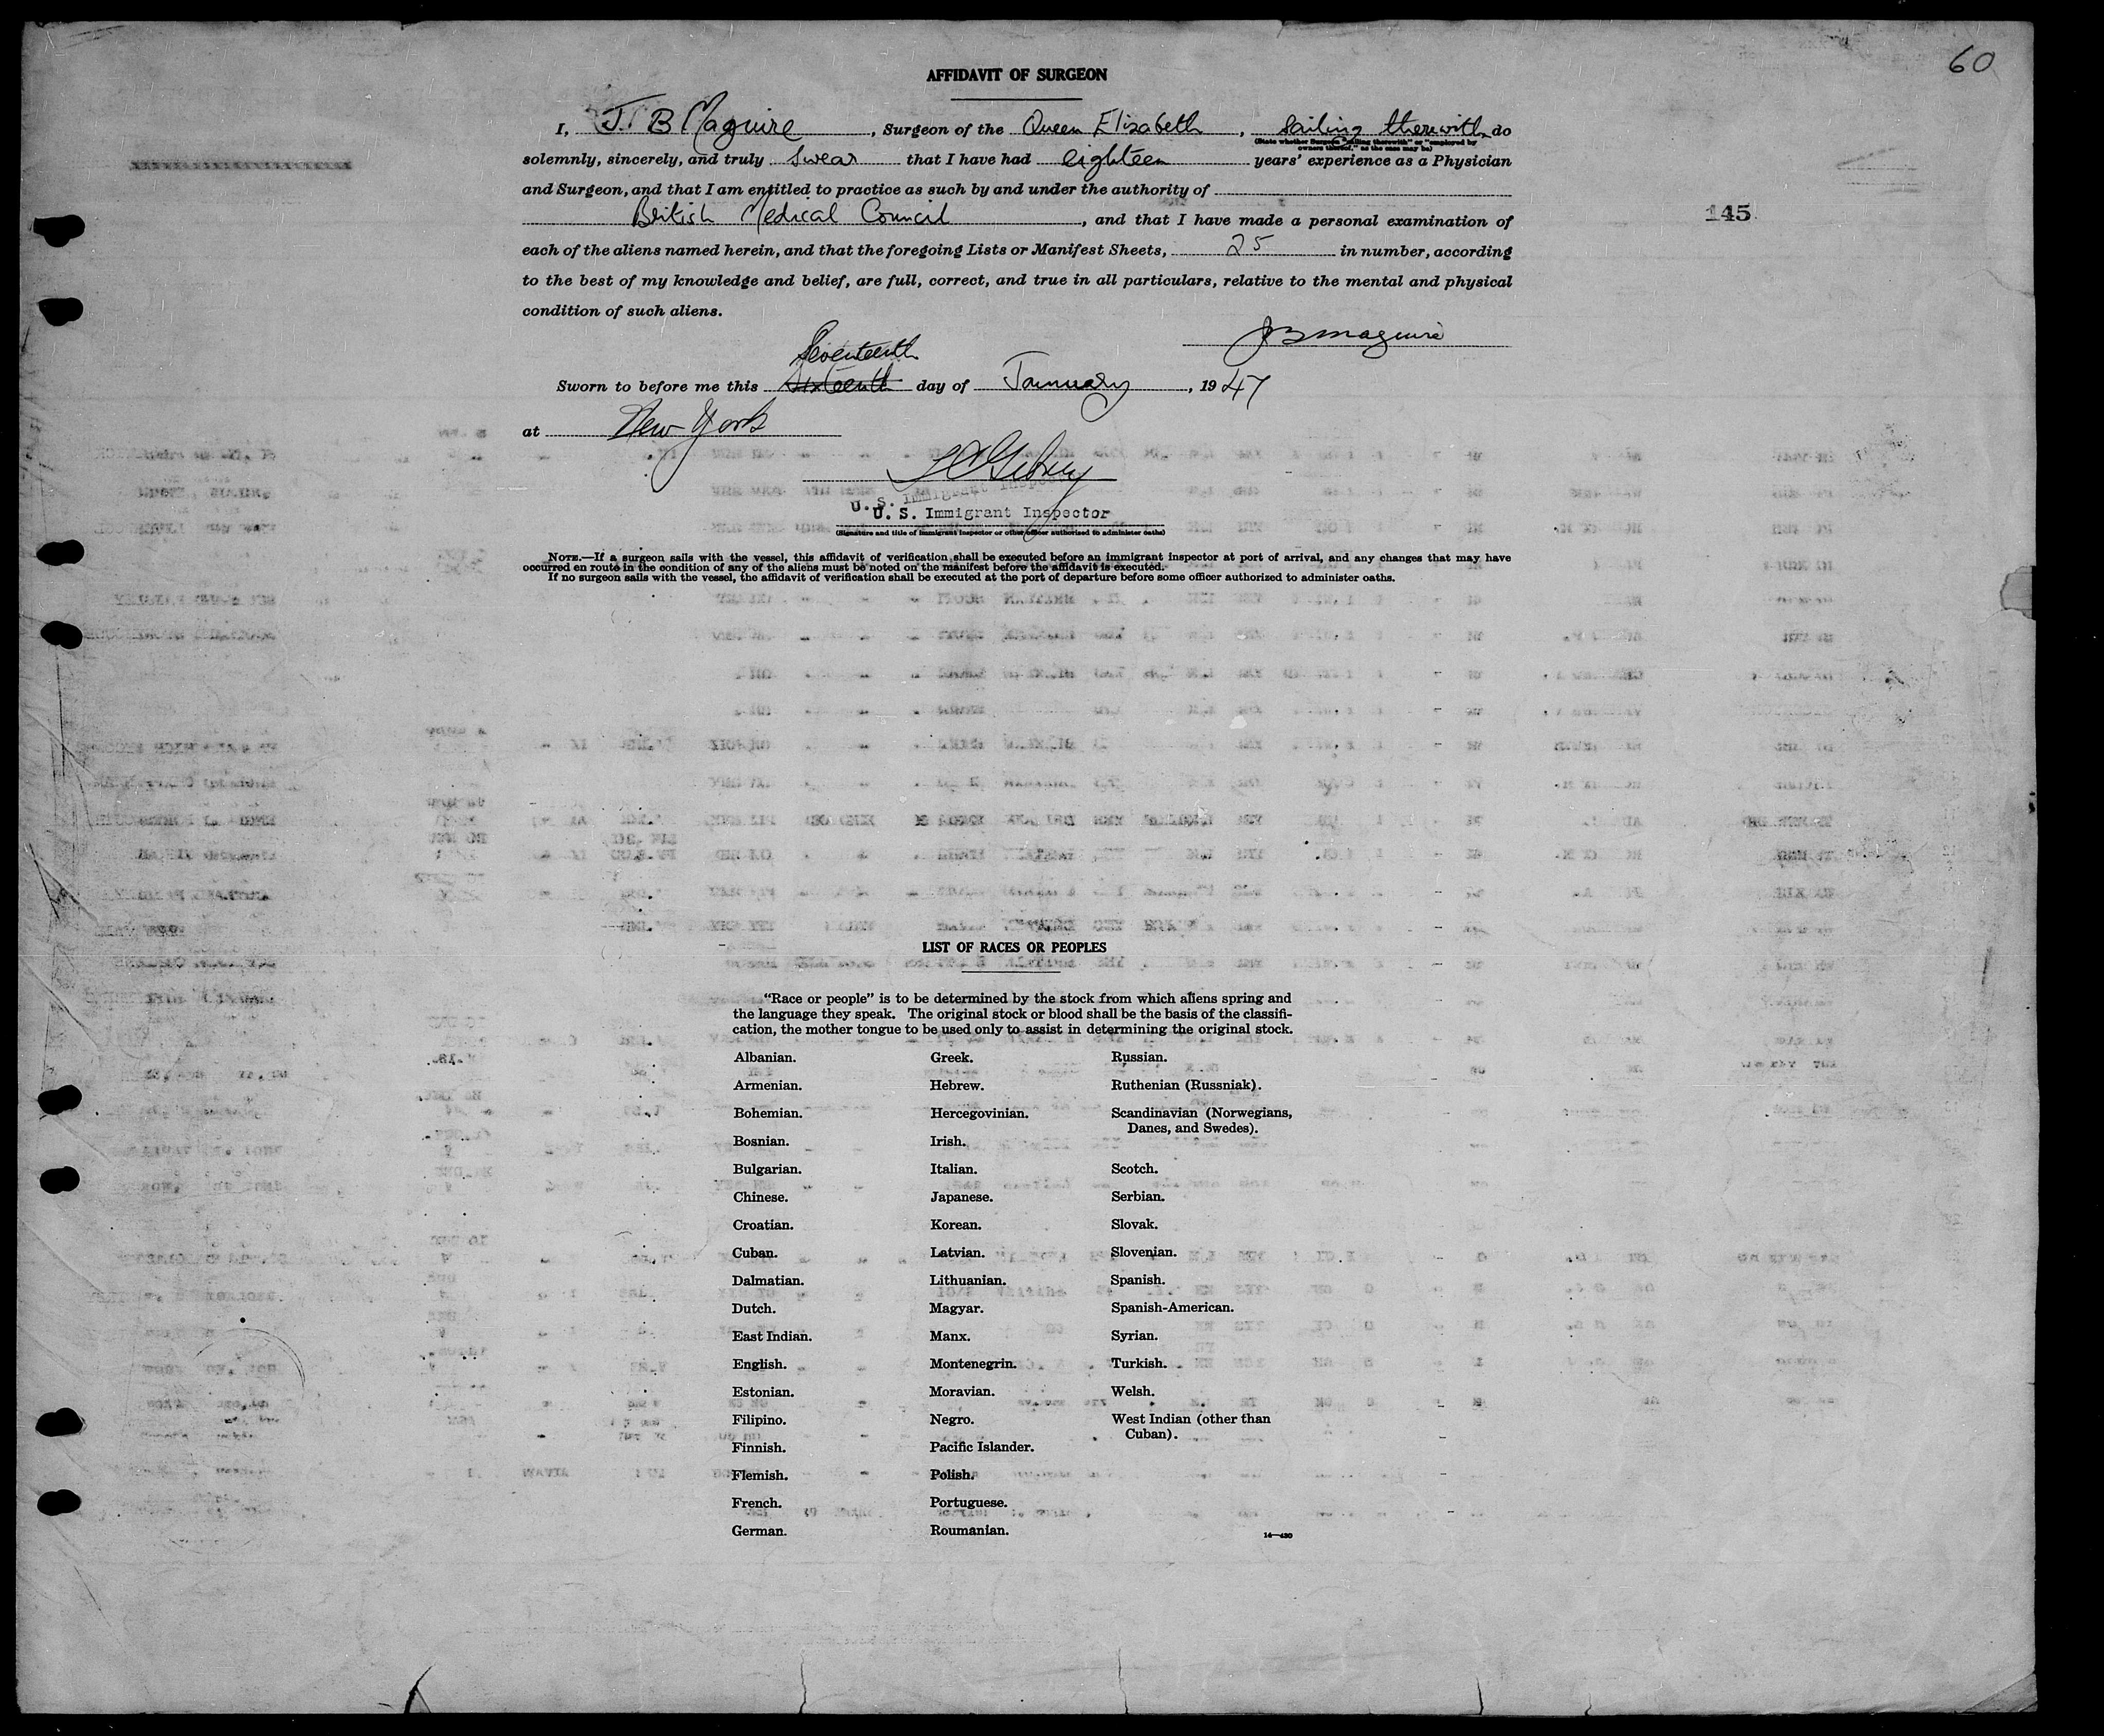 60
AFFIDAVIT OF SURGEON
I, J. B Maguire, Surgeon of the Queen Elizabeth, sailing therewith, do
(State whether Surgeon "sailing therewith" or "employed by
owners thereof," as the case may be)
solemnly, sincerely, and truly swear that I have had eighteen years' experience as a Physician
and Surgeon, and that I am entitled to practice as such by and under the authority of
British Medical Council, and that I have made a personal examination of
145
each of the aliens named herein, and that the foregoing Lists or Manifest Sheets, 25 in number, according
to the best of my knowledge and belief, are full, correct, and true in all particulars, relative to the mental and physical
condition of such aliens.
JB Maguire
Seventeenth
Sworn to before me this Sixteenth day of January, 1947
at New York
U. S. Immigrant Inspector
U. S. Immigrant Inspector
(Signature and title of immigrant inspector or other officer authorized to administer oaths)
NOTE.—If a surgeon sails with the vessel, this affidavit of verification shall be executed before an immigrant inspector at port of arrival, and any changes that may have
occurred en route in the condition of any of the aliens must be noted on the manifest before the affidavit is executed.
If no surgeon sails with the vessel, the affidavit of verification shall be executed at the port of departure before some officer authorized to administer oaths.
LIST OF RACES OR PEOPLES
"Race or people" is to be determined by the stock from which aliens spring and
the language they speak. The original stock or blood shall be the basis of the classifi-
cation, the mother tongue to be used only to assist in determining the original stock.
Albanian.
Armenian.
Bohemian.
Bosnian.
Bulgarian.
Chinese.
Croatian.
Cuban.
Dalmatian.
Dutch.
East Indian.
English.
Estonian.
Filipino.
Finnish.
Flemish.
French.
German.
Greek.
Hebrew.
Hercegovinian.
Irish.
Italian.
Japanese.
Korean.
Latvian.
Lithuanian.
Magyar.
Manx.
Montenegrin.
Moravian.
Negro.
Pacific Islander.
Polish.
Portuguese.
Roumanian.
Russian.
Ruthenian (Russniak).
Scandinavian (Norwegians,
Danes, and Swedes).
Scotch.
Serbian.
Slovak.
Slovenian.
Spanish.
Spanish-American.
Syrian.
Turkish.
Welsh.
West Indian (other than
Cuban).
14—430